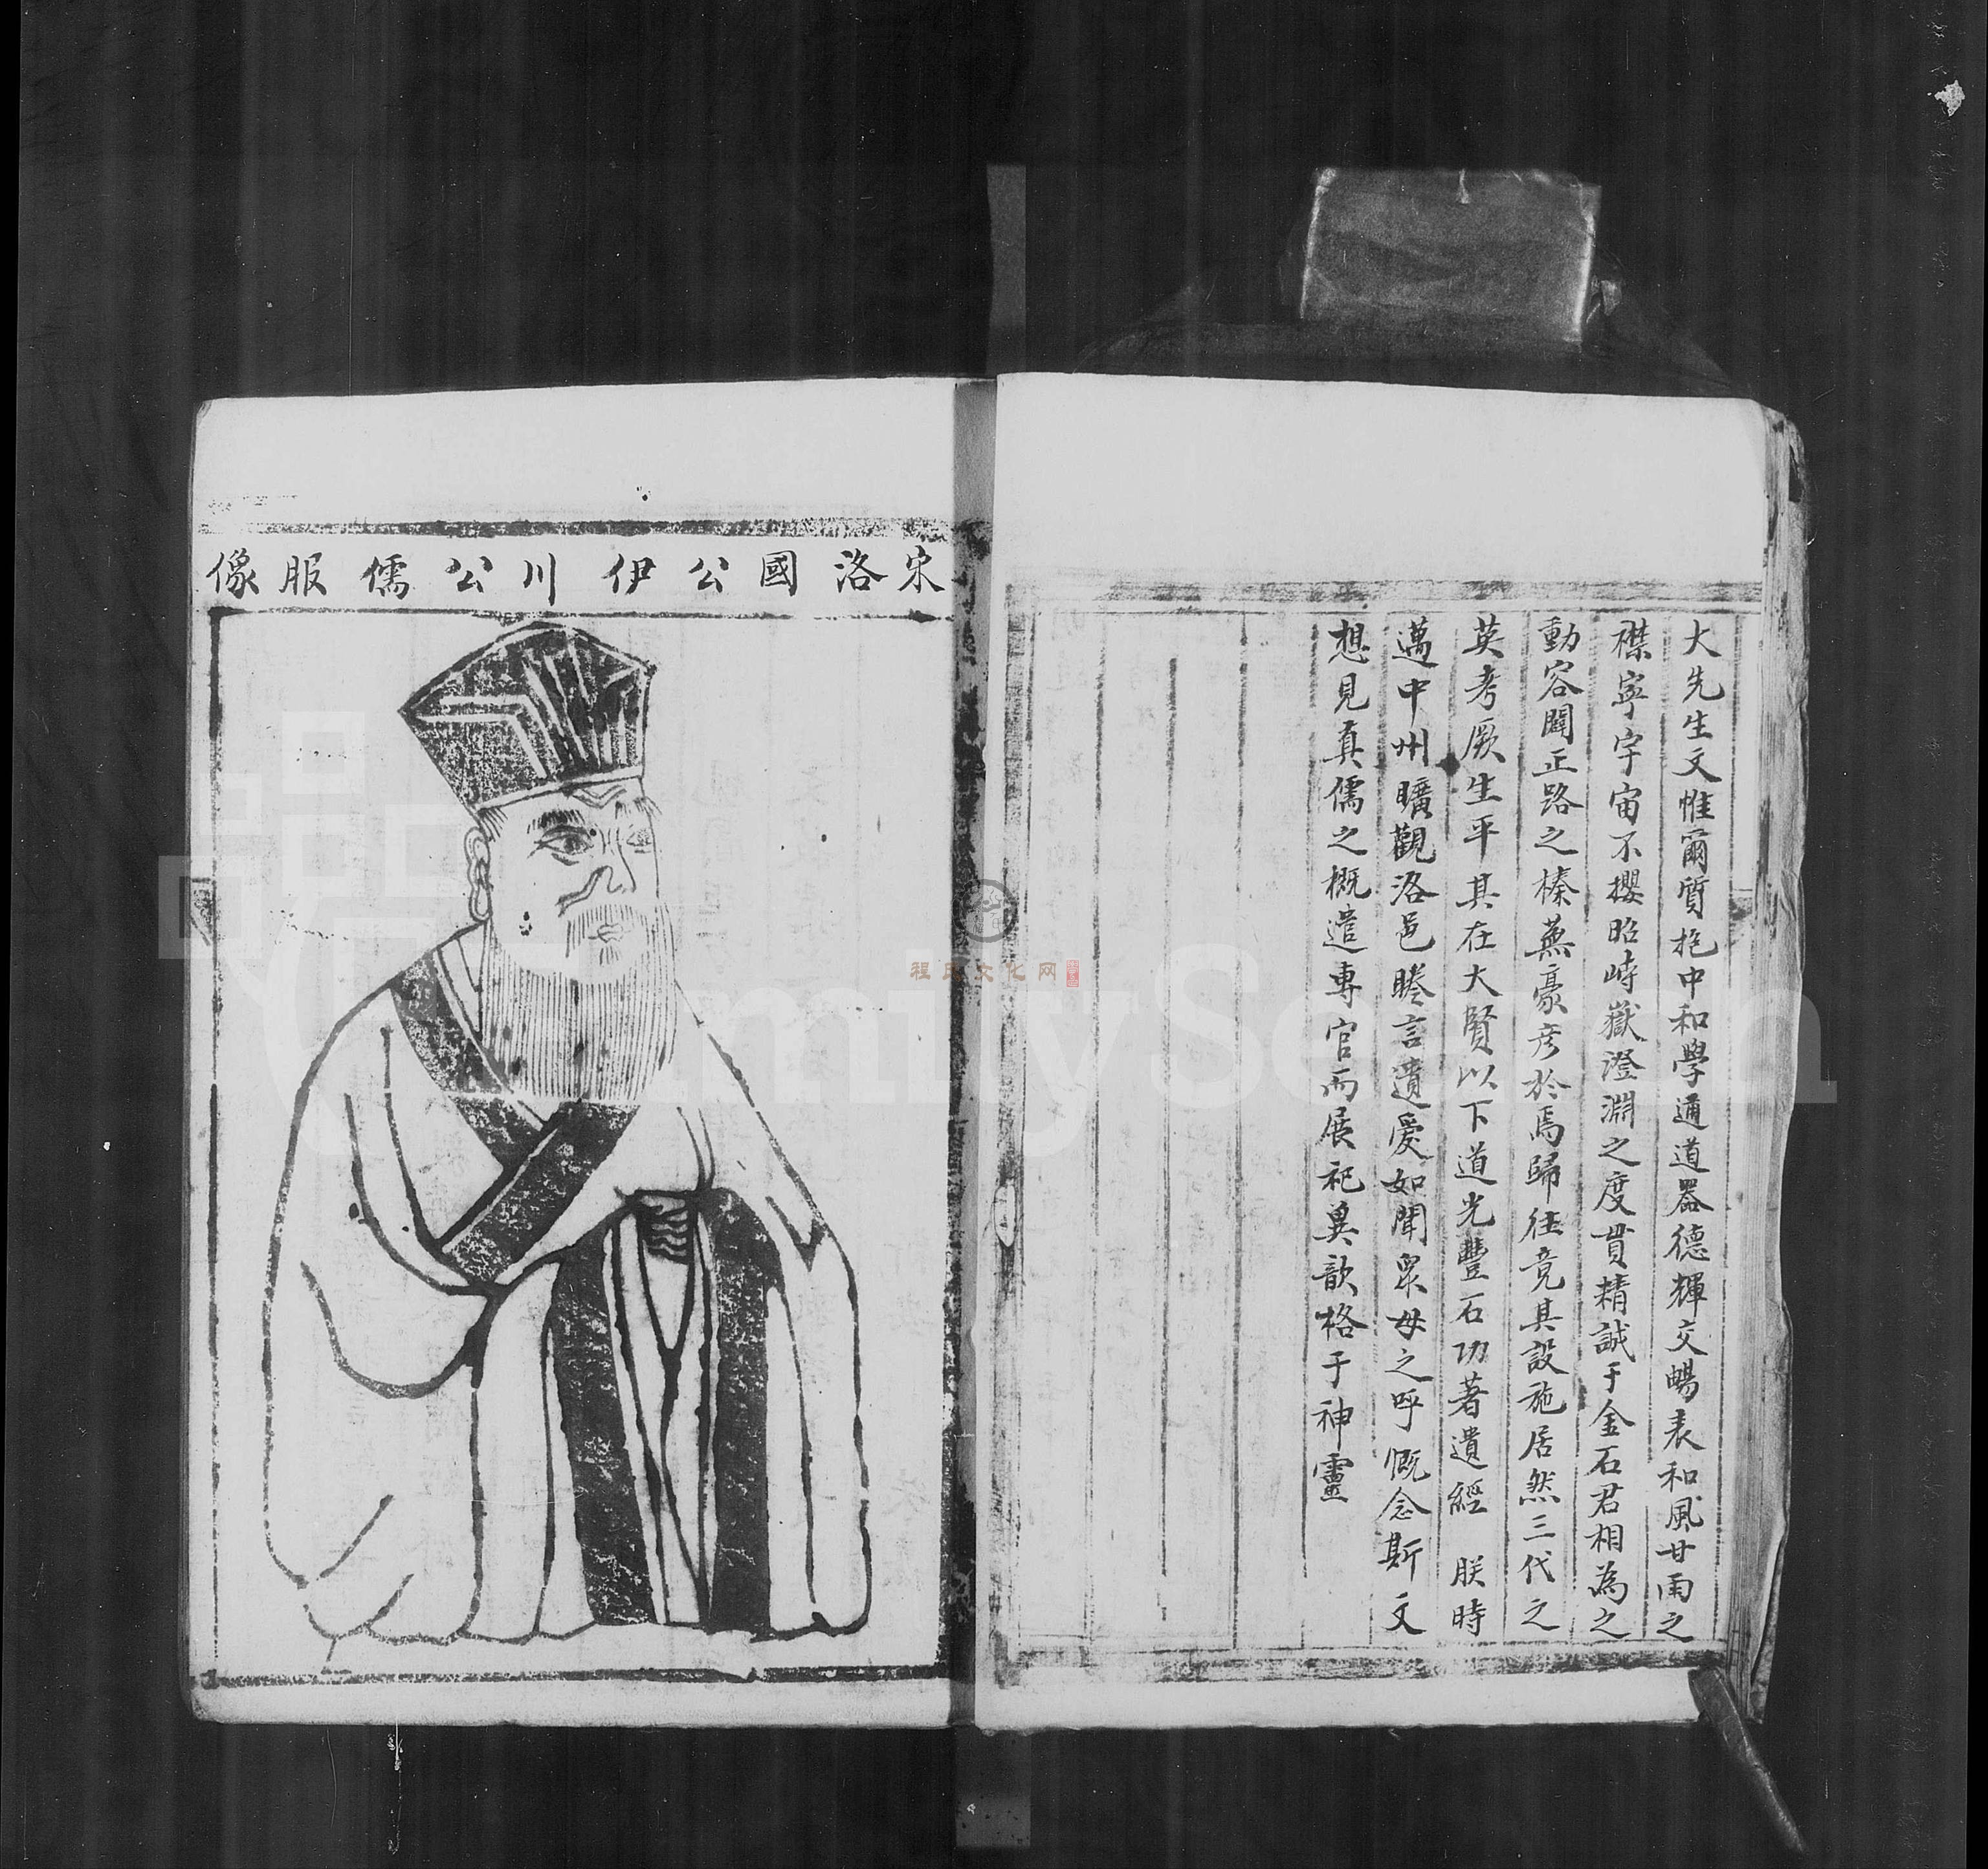 大先生文惟爾質抱中和學通道器德輝交暢表和風甘雨之
襟寧宇宙不攖昭峙嶽澄淵之度貫精誠于金石君相為之
動容闢正路之榛蕪豪彦於焉歸往竟其設施居然三代之
英考厥生平其在大賢以下道光豐石功著遺經 朕時
邁中州曠觀洛邑睠言遺愛如聞衆母之呼慨念斯文
想見真儒之概遣專官而展祀冀歆格于神靈
宋洛國公伊川公儒服像
程氏文化网
FamilySearch